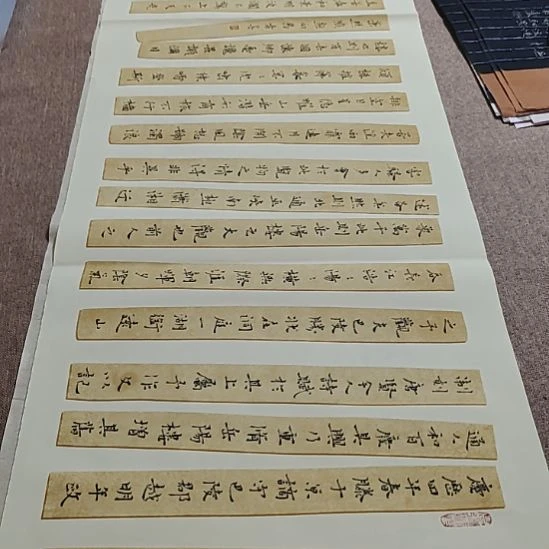 慶歷四年春滕子京謫守巴陵郡越明年政
通人和百廢具興乃重脩岳陽樓增其舊
制刻唐賢今人詩賦於其上屬予作文以記
之予觀夫巴陵勝狀在洞庭一湖銜遠山
吞長江浩浩湯湯橫無際涯朝暉夕陰氣
象萬千此則岳陽樓之大觀也前人之
述備矣然則北通巫峽南極瀟湘遷
客騷人多會於此覽物之情得無異乎
若夫霪雨霏霏連月不開陰風怒號濁浪
排空日星隱曜山岳潛形商旅不行檣
傾楫摧薄暮冥冥虎嘯猿啼登斯
樓也則有去國懷鄉憂讒畏譏滿目
蕭然感極而悲者矣